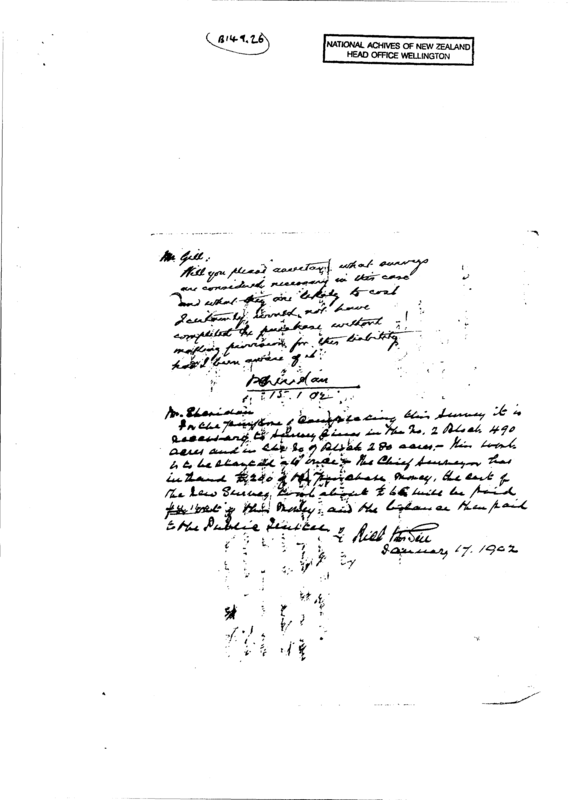 B149.26
NATIONAL ACHIVES OF NEW ZEALAND
HEAD OFFICE WELLINGTON
Mr Gill.
Will you please ascertain what surveys
are considered necessary in this case
and what they are likely to cost
I certainly would not have
completed the purchase without
making provision for this liability
had I been aware of it
P Sheridan
15.1.02
Mr. Sheridan
In the completing this Survey it is
necessary to Survey lines in the No. 2 Block 490
acres and in the of Block 280 acres - this work
is to be charged at once - The Chief Surveyor has
in hand £200 of the purchase money, the cost of
the new Survey about will be paid
out of this money, and the balance then paid
to the Public Trustee
Rich
January 17. 1902